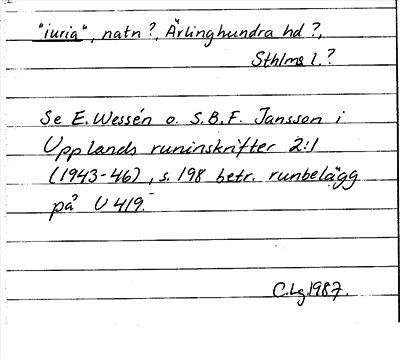 "iuria", natn ?, Ärlinghundra hd ?,
Sthlms l. ?
Se E. Wessén o. S.B.F. Jansson i
Upplands runinskrifter 2:1
(1943-46), s. 198 betr. runbelägg
på U 419.
C.Lg.1987.